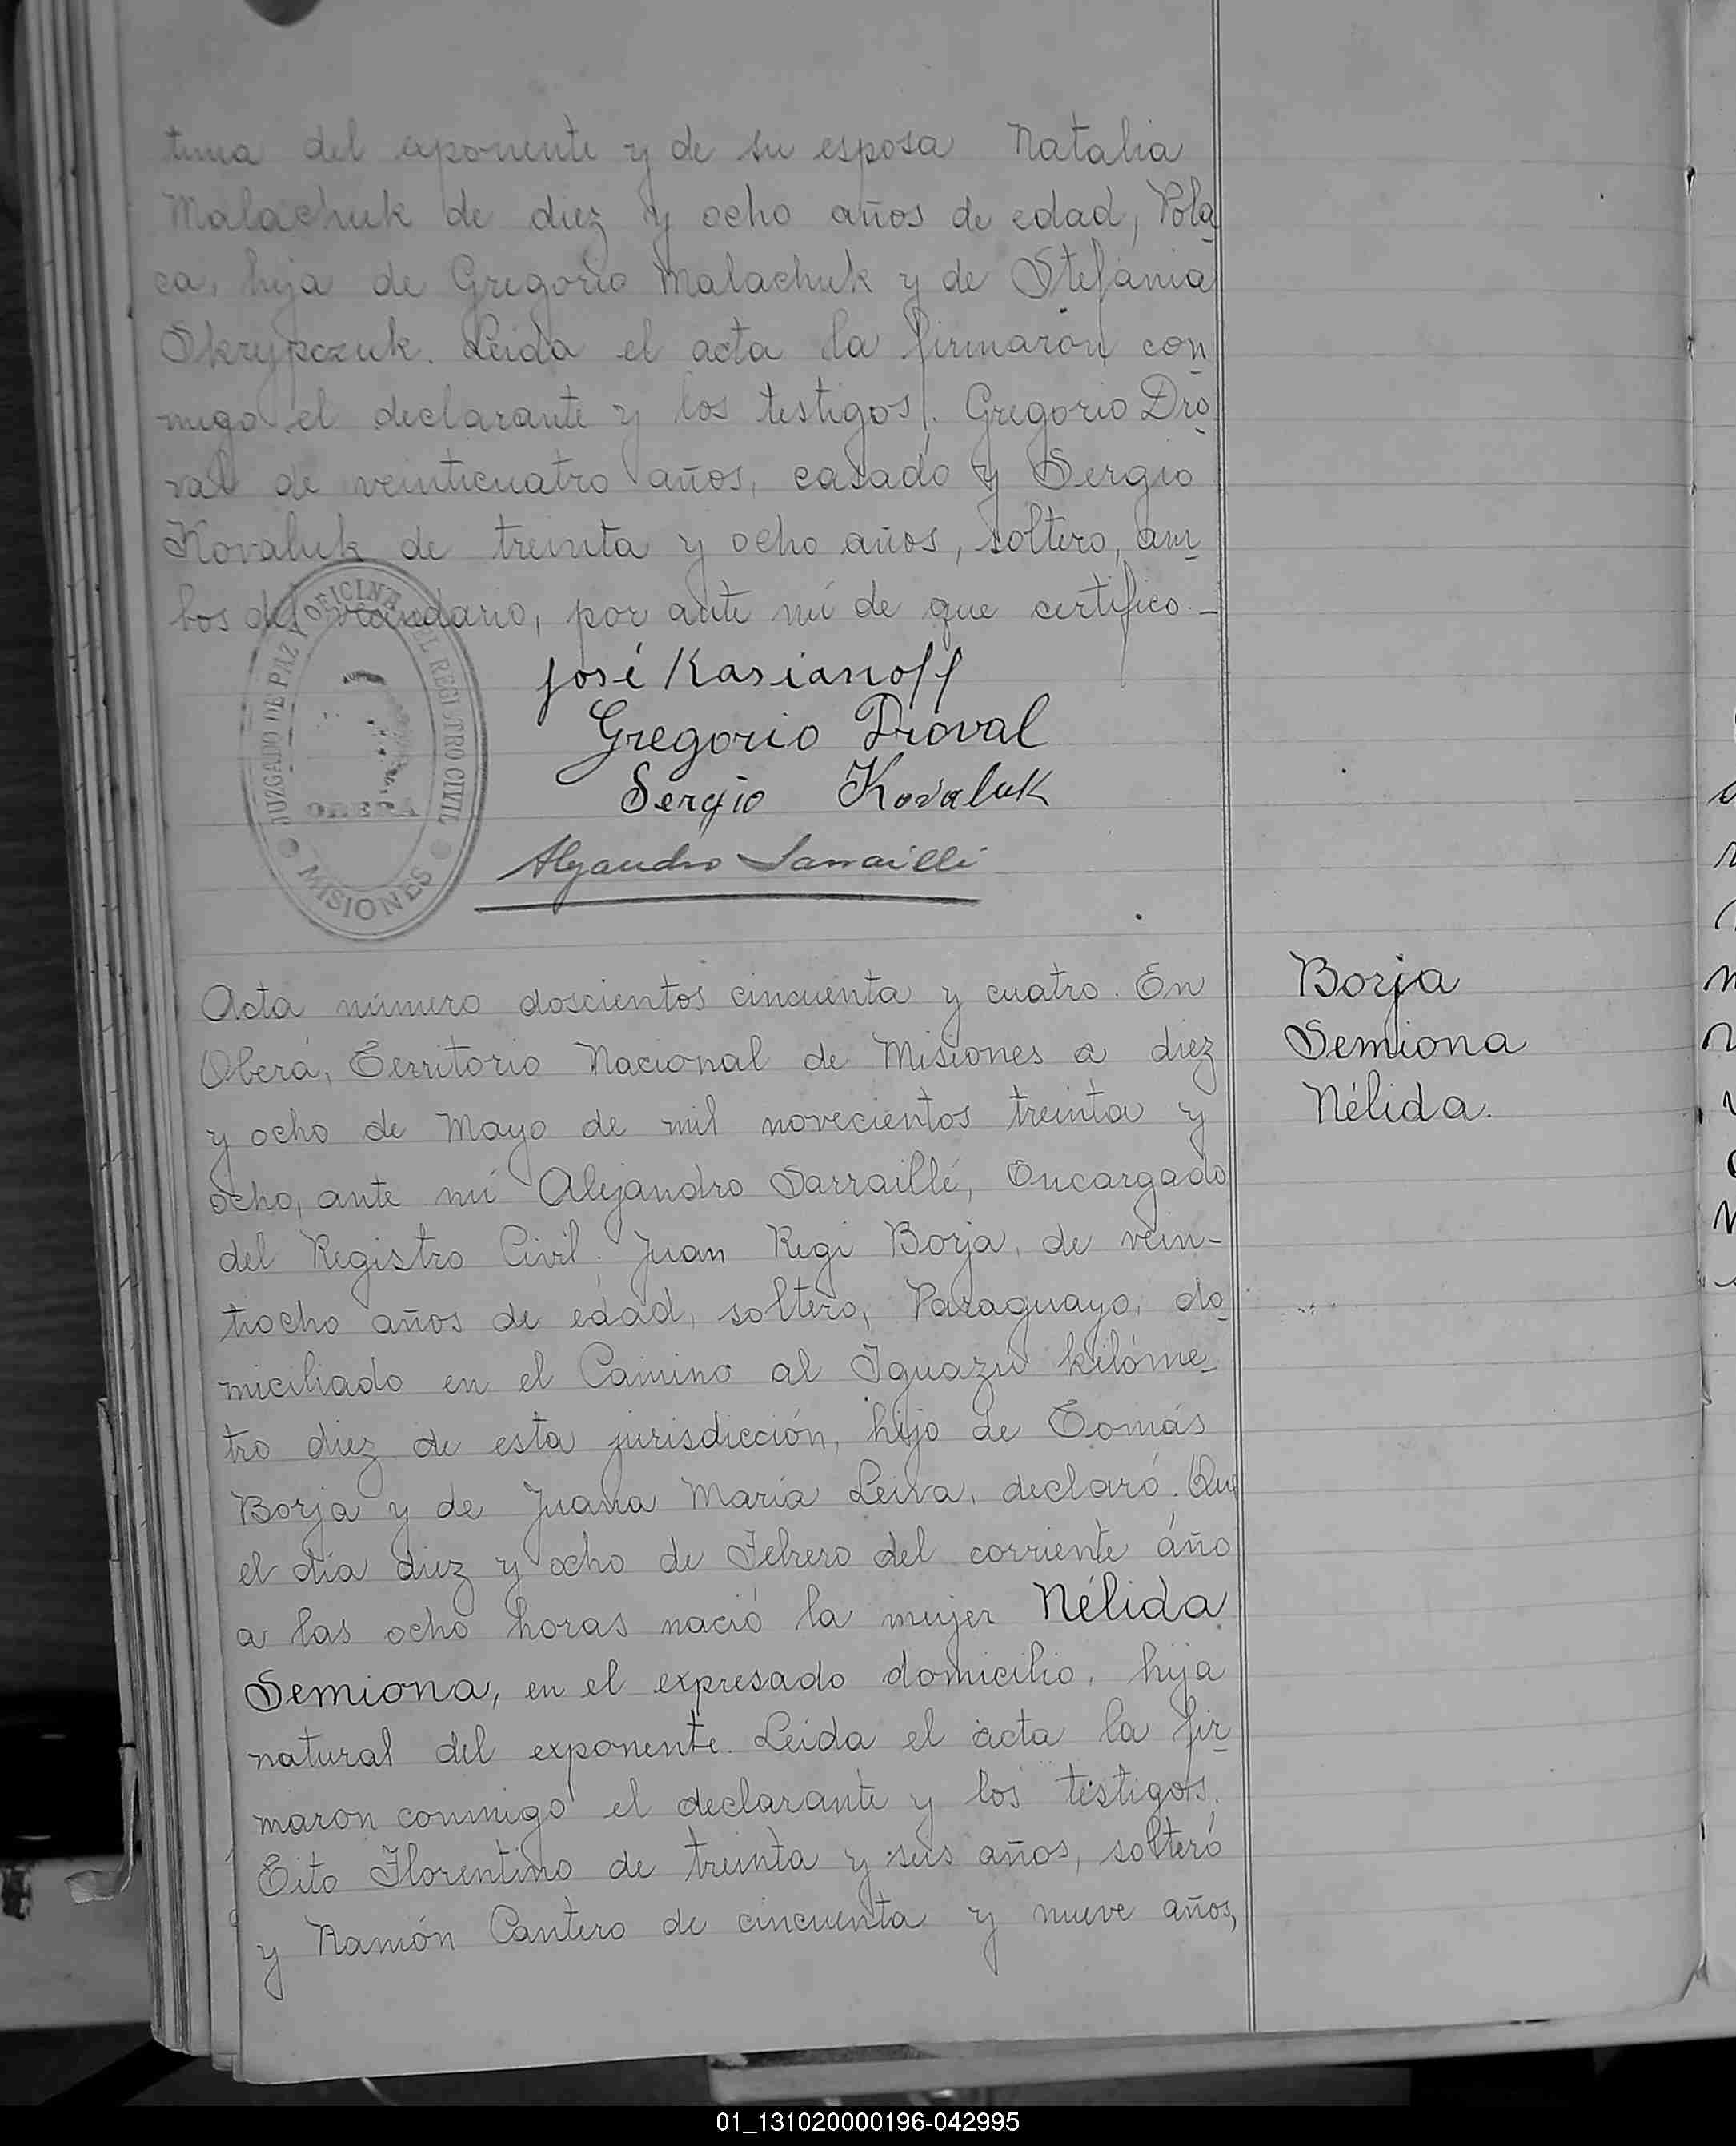 tima del exponente y de su esposa Natalia
Malachuk de diez y ocho años de edad, Pola
ca, hija de Gregorio Malachuk y de Stefania
Skrypczuk. Leida el acta la firmaron con
migo el declarante y los testigos. Gregorio Dro
val de veinticuatro años, casado y Sergio
Kovaluk de treinta y ocho años, soltero, am
bos del vecindario, por ante mí de que certifico.-
José Kasianoff
Gregorio Droval
Sergio Kovaluk
Alejandro Sarraillé
JUZGADO DE PAZ Y OFICINA DEL REGISTRO CIVIL
OBERA
MISIONES
Acta número doscientos cincuenta y cuatro. En
Oberá, Territorio Nacional de Misiones a diez
y ocho de Mayo de mil novecientos treinta y
ocho, ante mí Alejandro Sarraillé, Encargado
del Registro Civil; Juan Regi Borja, de vein-
tiocho años de edad, soltero, Paraguayo, do
miciliado en el Camino al Iguazú kilóme-
tro diez de esta jurisdicción, hijo de Tomás
Borja y de Juana María Leiva, declaró: Que
el día diez y ocho de Febrero del corriente año
a las ocho horas nació la mujer Nélida
Semiona, en el expresado domicilio, hija
natural del exponente. Leida el acta la fir
maron conmigo el declarante y los testigos.
Tito Florentino de treinta y seis años, soltero
y Ramón Cantero de cincuenta y nueve años,
Borja
Semiona
Nélida.
01_131020000196-042995